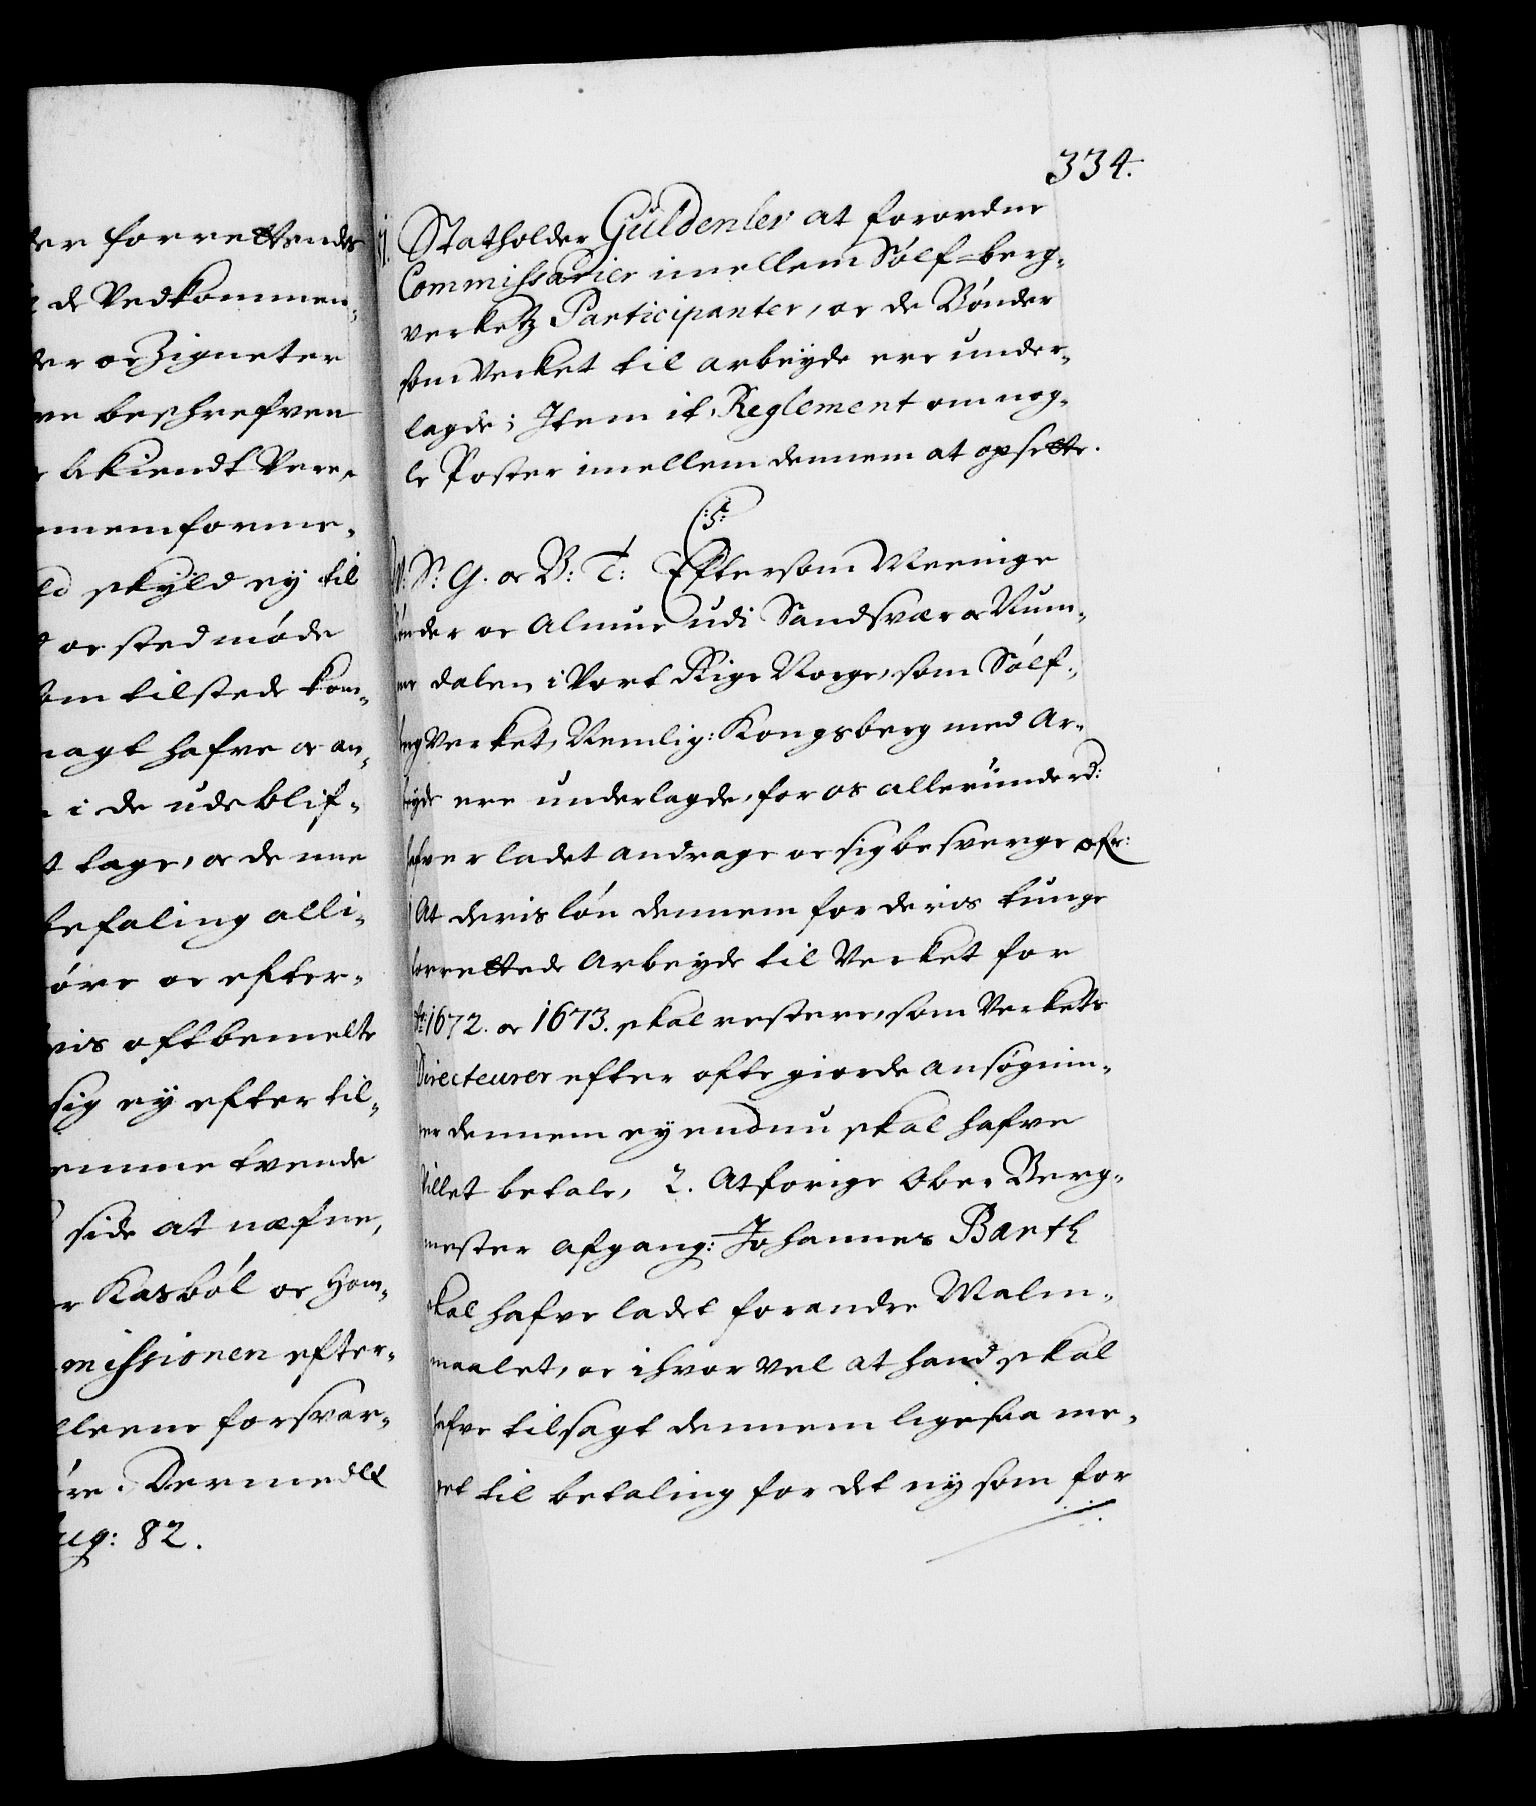 ter forrettendis
de Vedkommen-
der oc Zigneter
beschrefven
bekiendt Vere,
nnem forme-
skyld ey til
oc sted møde
tilstede kom-
magt hafve oc an-
i de udeblif-
tage, oc denne
befaling alli-
giøre oc efter-
oftbemelte
sig ey efter til-
tvende
side at næfne,
Kasbøl oc Hom-
missionen efter-
forsvar-
Dermed etc
Aug: 82.
334.
Statholder Güldenlev at forordne
Commissarier imellem Sølf-berg-
verketz Participanter, oc de Bønder
som Verket til arbeyde ere under-
lagde; Item it Reglement om nog-
le Poster imellem dennem at opsette.
C:5:
V: S: G. oc B: T: Eftersom Meenige
Bønder oc Almue udi Sandsvær oc Num-
me dalen i Vort Rige Norge, som Sølf-
berg Verket, Nemlig: Kongsberg med Ar-
beyde ere underlagde, for os allerunderd:
hafver ladet andrage oc sig besverge ofr:
1 At deris løn dennem for deris tunge
forrettede Arbeyde til Verket for
Ao: 1672. oc 1673. skal restere, som Verkets
Directeurer efter ofte giorde ansøgnin-
ger dennem ey endnu skal hafve
villet betale, 2. At forige Ober Berg-
mester afgang: Johannes Barth
skal hafve ladet forandre Malm-
maalet, oc ihvor vel at hand skal
hafve tilsagt dennem ligesaa me-
get til betaling for det ny som for